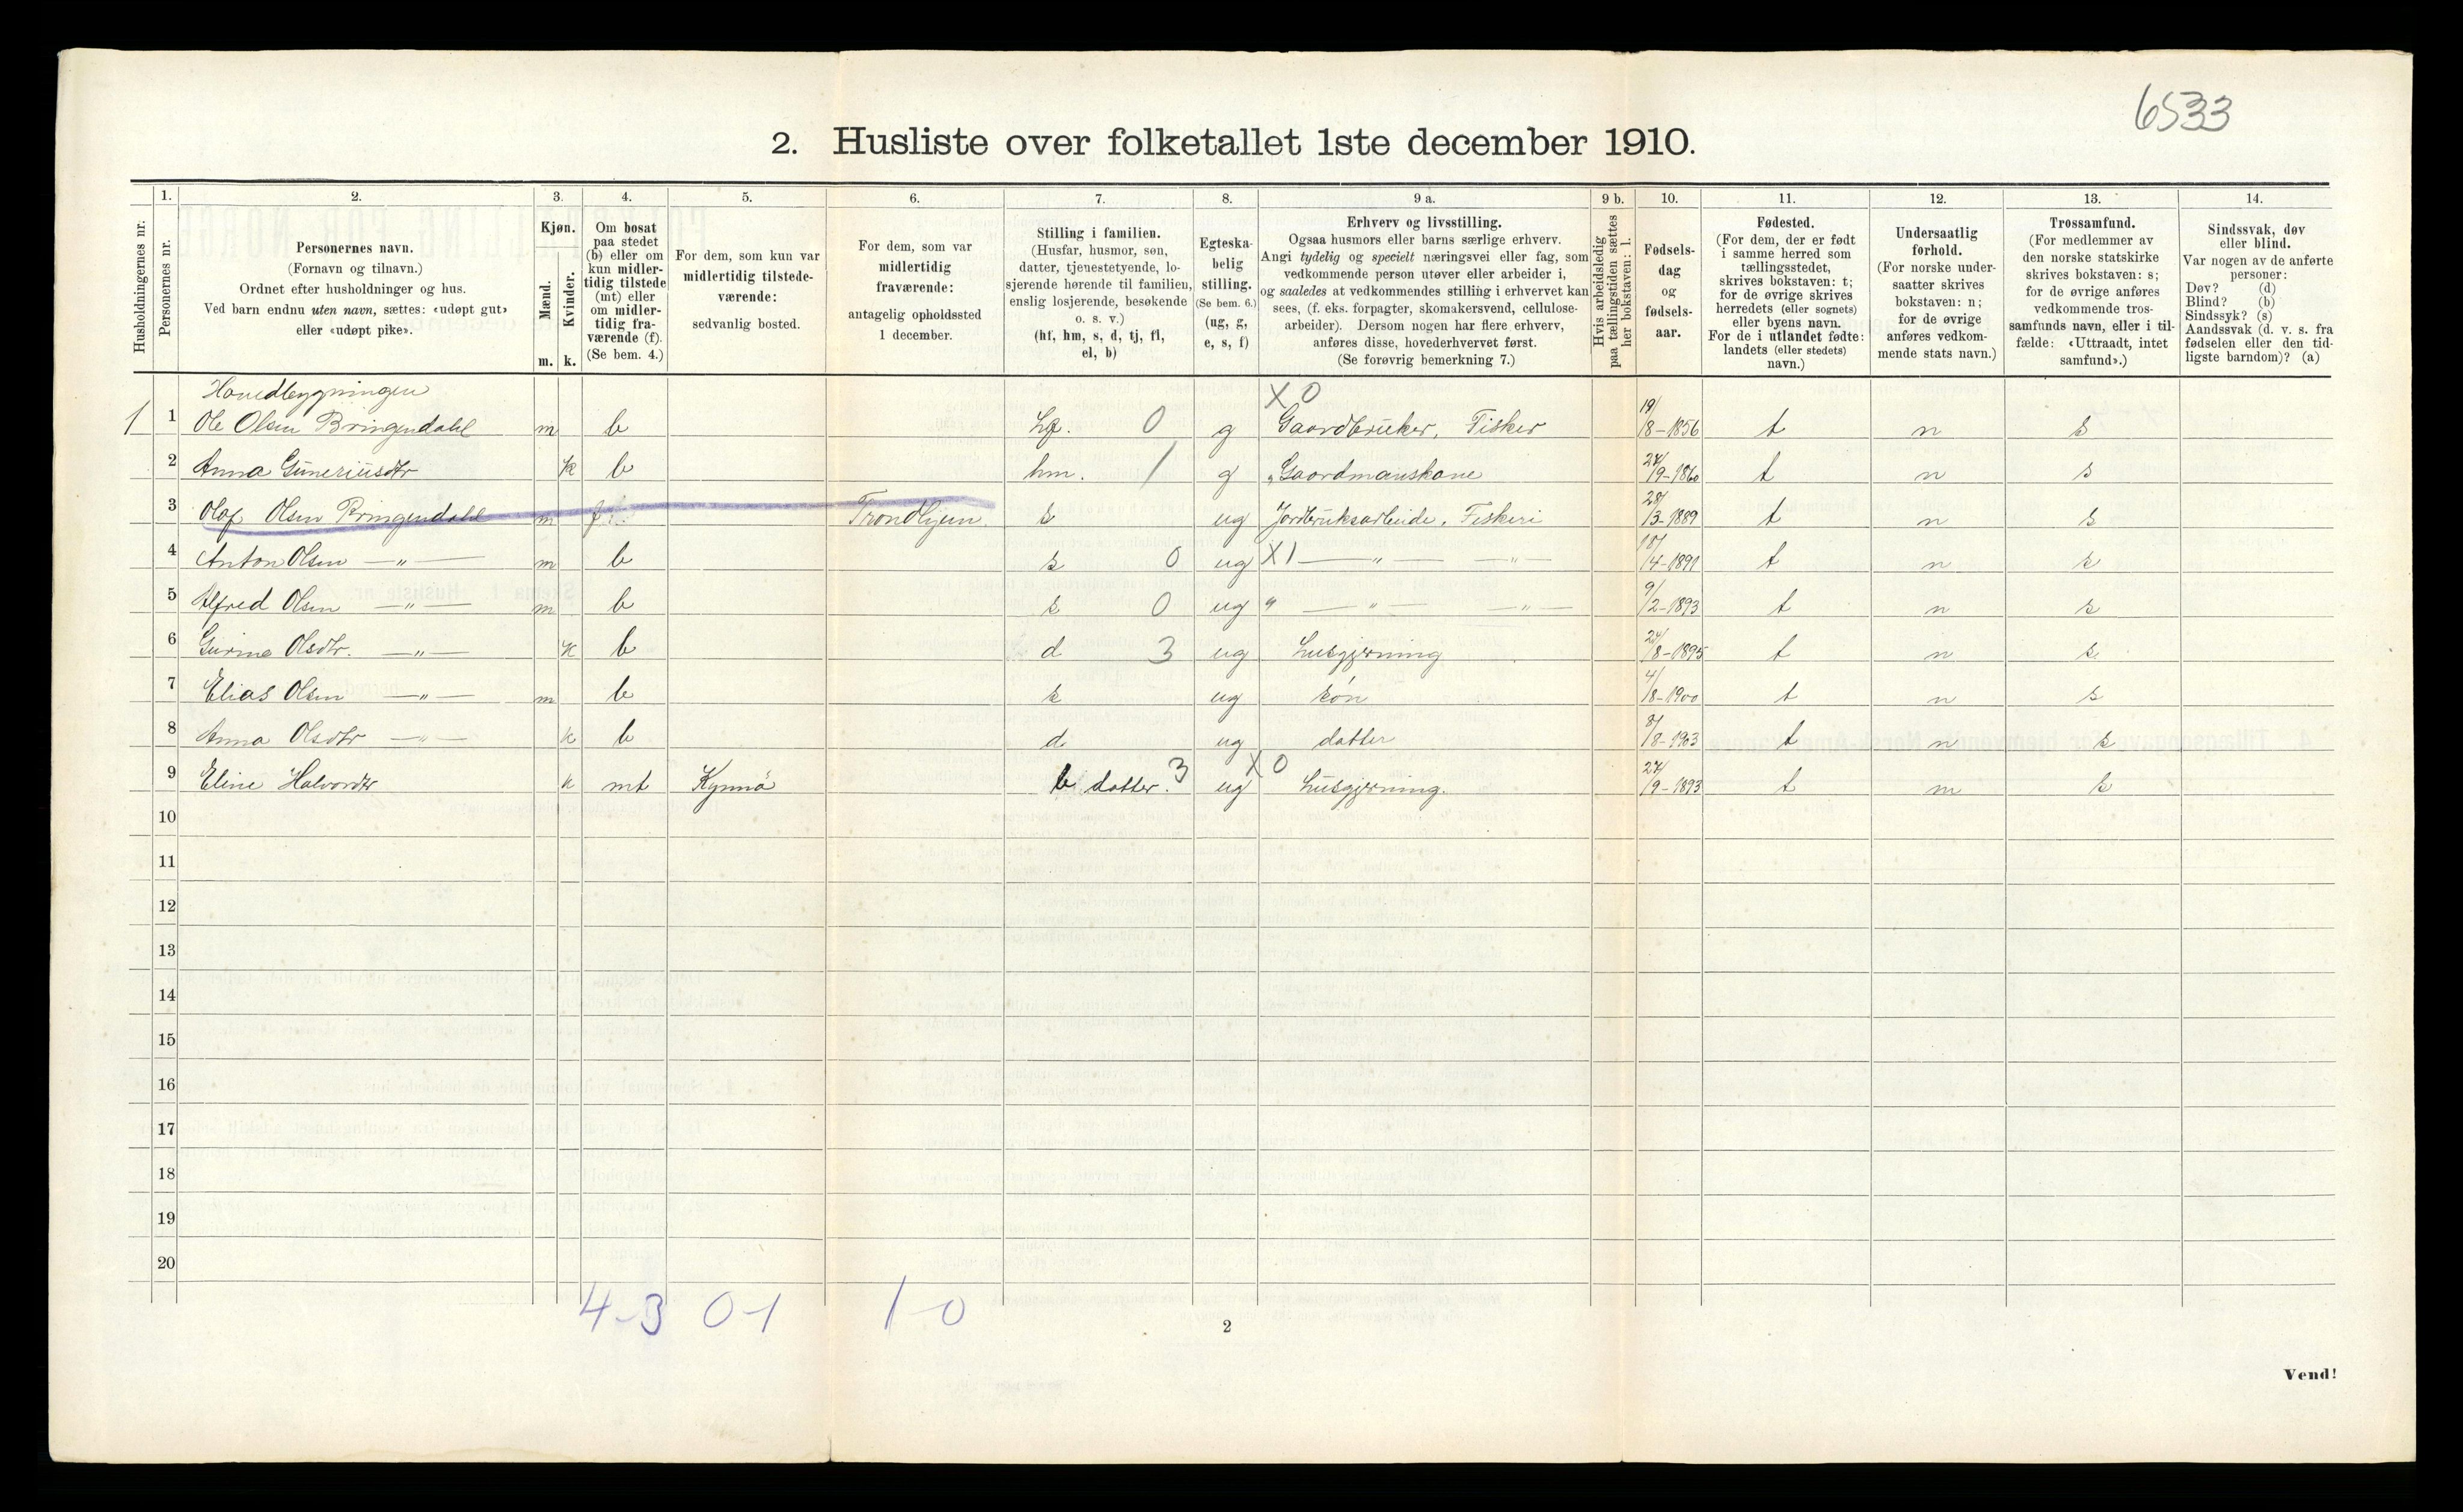 6533
2. Husliste over folketallet 1ste december 1910.
Husholdningernes nr.
1.
Personernes nr.
2.
Personernes navn.
(Fornavn og tilnavn.)
Ordnet efter husholdninger og hus.
Ved barn endnu uten navn, sættes: «udøpt gut»
eller «udøpt pike».
3.
Kjøn.
Mænd.
Kvinder.
m. k.
4.
Om bosat
paa stedet
(b) eller om
kun midler-
tidig tilstede
(mt) eller
om midler-
tidig fra-
værende (f).
(Se bem. 4.)
5.
For dem, som kun var
midlertidig tilstede-
værende:
sedvanlig bosted.
6.
For dem, som var
midlertidig
fraværende:
antagelig opholdssted
1 december.
7.
Stilling i familien.
(Husfar, husmor, søn,
datter, tjenestetyende, lo-
sjerende hørende til familien,
enslig losjerende, besøkende
o. s. v.)
(hf, hm, s, d, tj, fl,
el, b)
8.
Egteska-
belig
stilling.
(Se bem. 6.)
(ug, g,
e, s, f)
9 a.
Erhverv og livsstilling.
Ogsaa husmors eller barns særlige erhverv.
Angi tydelig og specielt næringsvei eller fag, som
vedkommende person utøver eller arbeider i,
og saaledes at vedkommendes stilling i erhvervet kan
sees, (f. eks. forpagter, skomakersvend, cellulose-
arbeider). Dersom nogen har flere erhverv,
anføres disse, hovederhvervet først.
(Se forøvrig bemerkning 7.)
9 b.
Hvis arbeidsledig
paa tællingstiden sættes
her bokstaven: l.
10.
Fødsels-
dag
og
fødsels-
aar.
11.
Fødested.
(For dem, der er født
i samme herred som
tællingsstedet,
skrives bokstaven: t;
for de øvrige skrives
herredets (eller sognets)
eller byens navn.
For de i utlandet fødte:
landets (eller stedets)
navn.)
12.
Undersaatlig
forhold.
(For norske under-
saatter skrives
bokstaven: n;
for de øvrige
anføres vedkom-
mende stats navn.)
13.
Trossamfund.
(For medlemmer av
den norske statskirke
skrives bokstaven: s;
for de øvrige anføres
vedkommende tros-
samfunds navn, eller i til-
fælde: «Uttraadt, intet
samfund».)
14.
Sindssvak, døv
eller blind.
Var nogen av de anførte
personer:
Døv? (d)
Blind? (b)
Sindssyk? (s)
Aandssvak (d. v. s. fra
fødselen eller den tid-
ligste barndom)? (a)
Hovedbygningen
1 1 Ole Olsen Bringendahl m b hf. 0 g X 0 Gaardbruker, Fisker 19/8-1856 t n s
2 Anna Guneriusdtr k b hm. 1 g „ Gaardmanskone 24/9-1860 t n s
3 Olaf Olsen Bringendahl m f Trondhjem s ug Jordbruksarbeide, Fiskeri 28/3-1889 t n s
4 Anton Olsen —„— m b s 0 ug X 1 —„— —„— 18/4-1891 t n s
5 Alfred Olsen —„— m b s 0 ug „ —„— —„— 9/2-1893 t n s
6 Gurine Olsdtr. —„— k b d 3 ug Husgjerning 24/8-1895 t n s
7 Elias Olsen —„— m b s ug søn 4/8-1900 t n s
8 Anna Olsdtr —„— k b d ug datter 8/8-1903 t n s
9 Eline Halvordtr k mt Kynnö b datter. 3 ug X 0 Husgjerning. 27/9-1893 t n s
10
11
12
13
14
15
16
17
18
19
20
4-3 0-1 1-0
2
Vend!